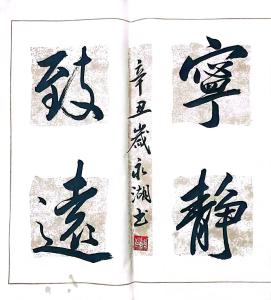 寧靜
致遠
辛丑歲永湖书